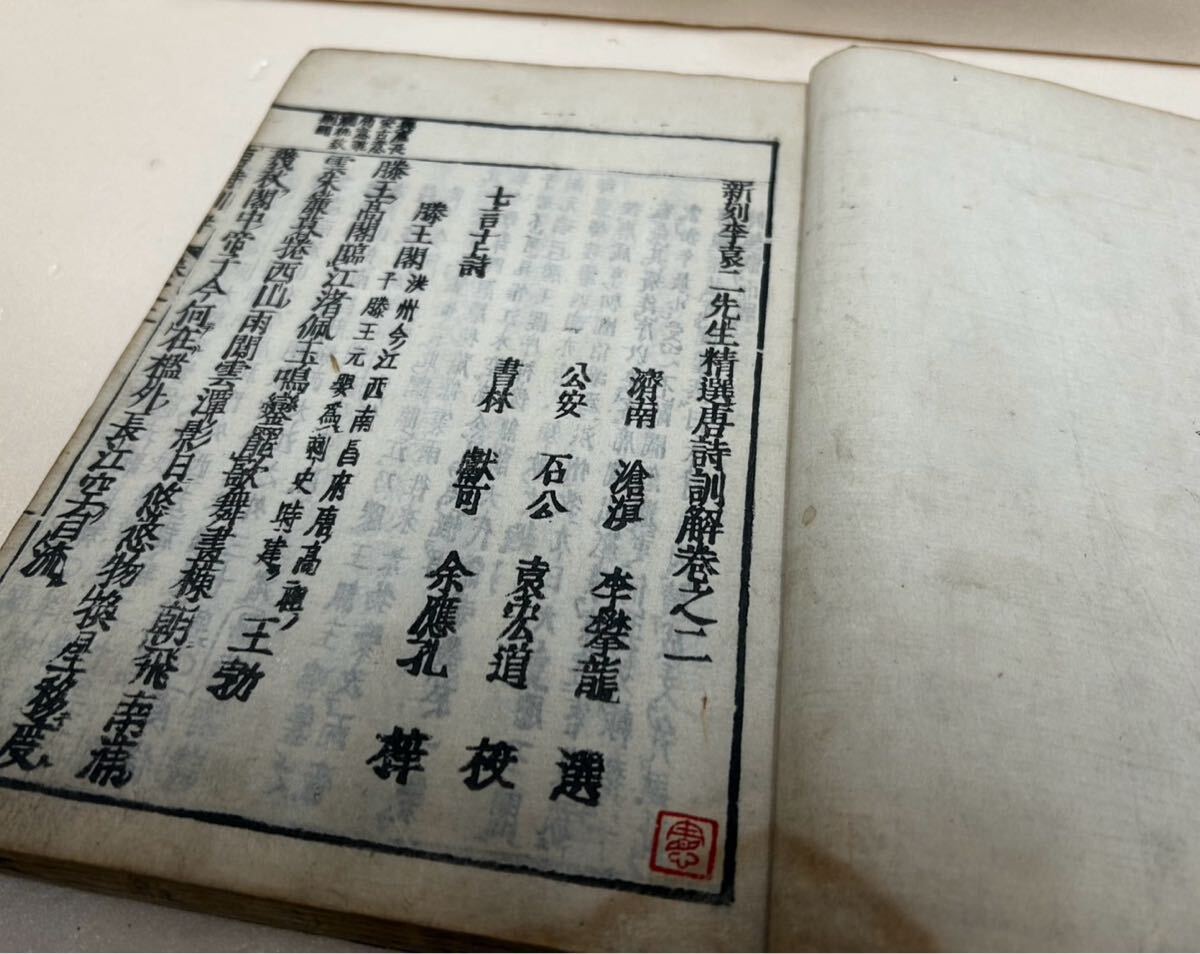 新刻李袁二先生精選唐詩訓解卷之二
濟南 滄溟 李攀龍 選
公安 石公 袁宏道 校
書林 獻可 余應孔 梓
七言古詩
滕王閣 洪州今江西南昌府唐高祖
子滕王元嬰爲刺史時建 王勃
滕王高閣臨江渚佩玉鳴鸞罷歌舞畫棟朝飛南浦
雲朱簾暮捲西山雨閒雲潭影日悠悠物換星移度
幾秋閣中帝子今何在檻外長江空自流